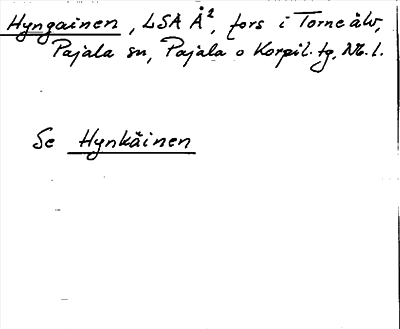 Hyngainen, LSA Å², fors i Torneälv,
Pajala sn, Pajala o Korpil. tg, Nb. l.
Se Hynkäinen